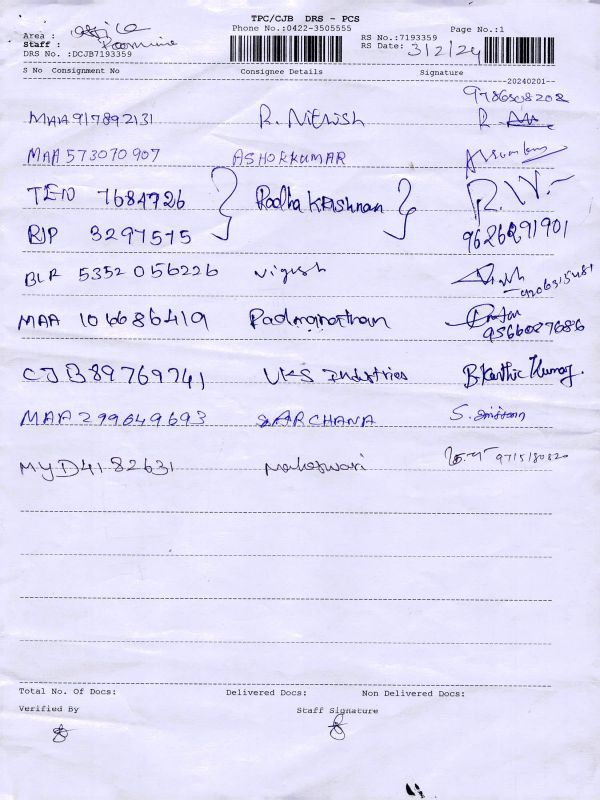 TPC/CJB DRS - PCS
Phone No.:0422-3505555
Page No.:1
Area : office
Staff :
DRS No. :DCJB7193359
RS No.:7193359
RS Date: 3/2/24
S No Consignment No Consignee Details Signature
--20240201--
9786508208
MAA917892131 R. Nithish R.
MAA 573070907 ASHOKKUMAR
TEN 7684726 Radha Krishnan
RJP 3297575 9626291901
BLR 5352056226 Vignesh
MAA 106686419 Padmanathan 9566027686
CJB89769741 VKS Industries B.Karthic Kumar.
MAA299649693 ARCHANA S.
MYD4182631 Maheswari 9715180820
Total No. Of Docs: Delivered Docs: Non Delivered Docs:
Verified By Staff Signature